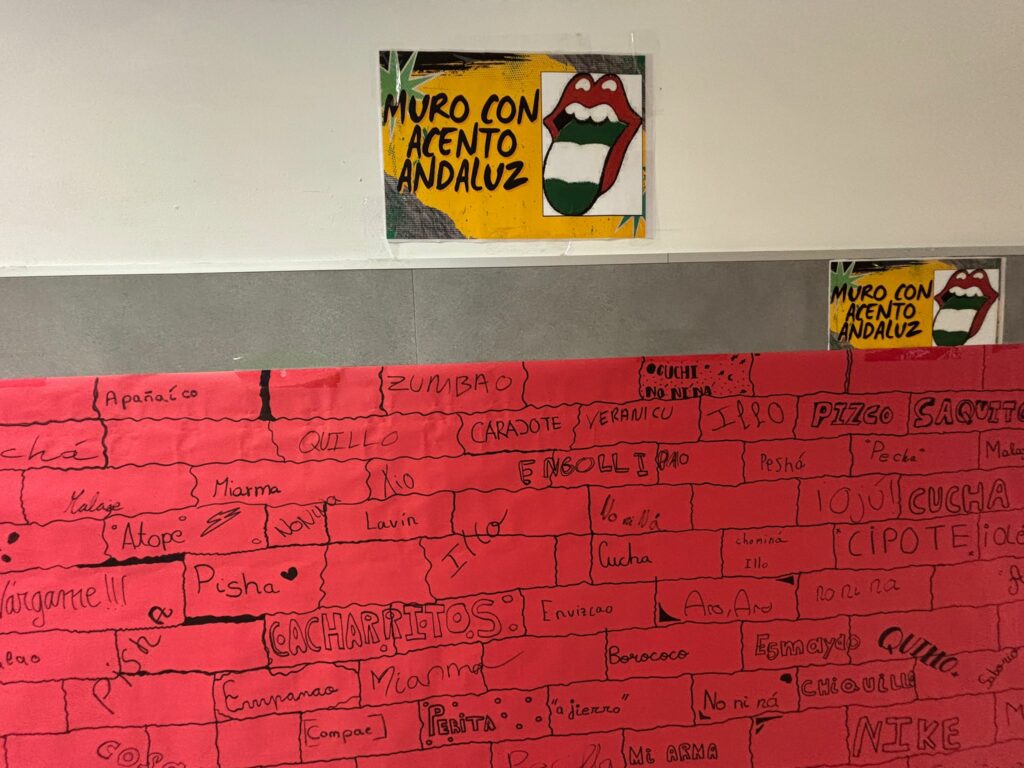 MURO CON
ACENTO
ANDALUZ
MURO CON
ACENTO
ANDALUZ
Apañaíco
ZUMBAO
CUCHI
NO NI NA
chá
QUILLO
CARAJOTE
VERANICU
Illo
PIZCO
SAQUITO
Malaje
Miarma
Xio
ENGOLLIPAO
Peshá
"Pecha"
"Atope"
NONINA
Lavín
Illo
No ni ná
IOJÚ!
CUCHA
Várgame!!!
Pisha
Cucha
chominá
Illo
"CIPOTE"
¡olé
Pisha
CACHARRITOS
Envizcao
Aro, Aro
no ni na
Empanao
Mianma
Borococo
Esmayao
QUILLO
[Compae]
PERITA
"a jierro"
No ni ná
CHIQUILLO
MI ARMA
NIKE